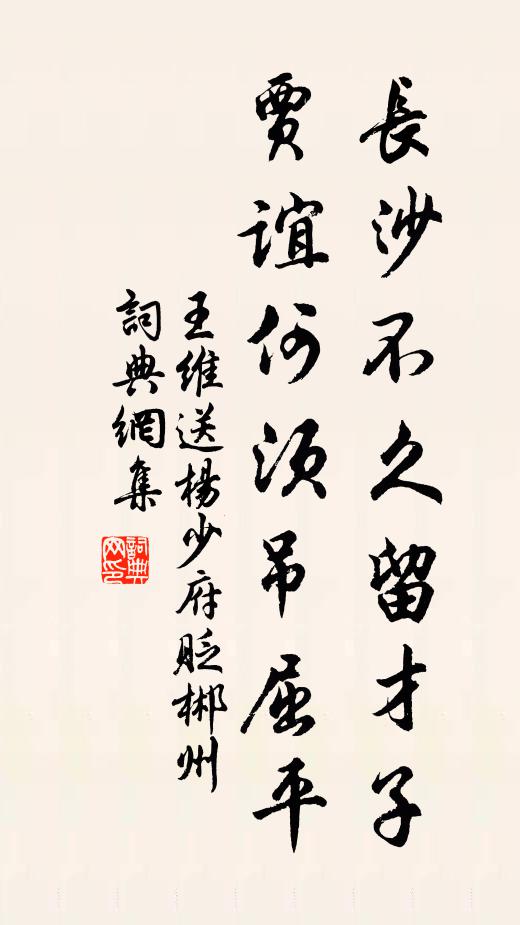 長沙不久留才子
賈誼何須吊屈平
王維送楊少府貶郴州
詞典網集
詞典网印